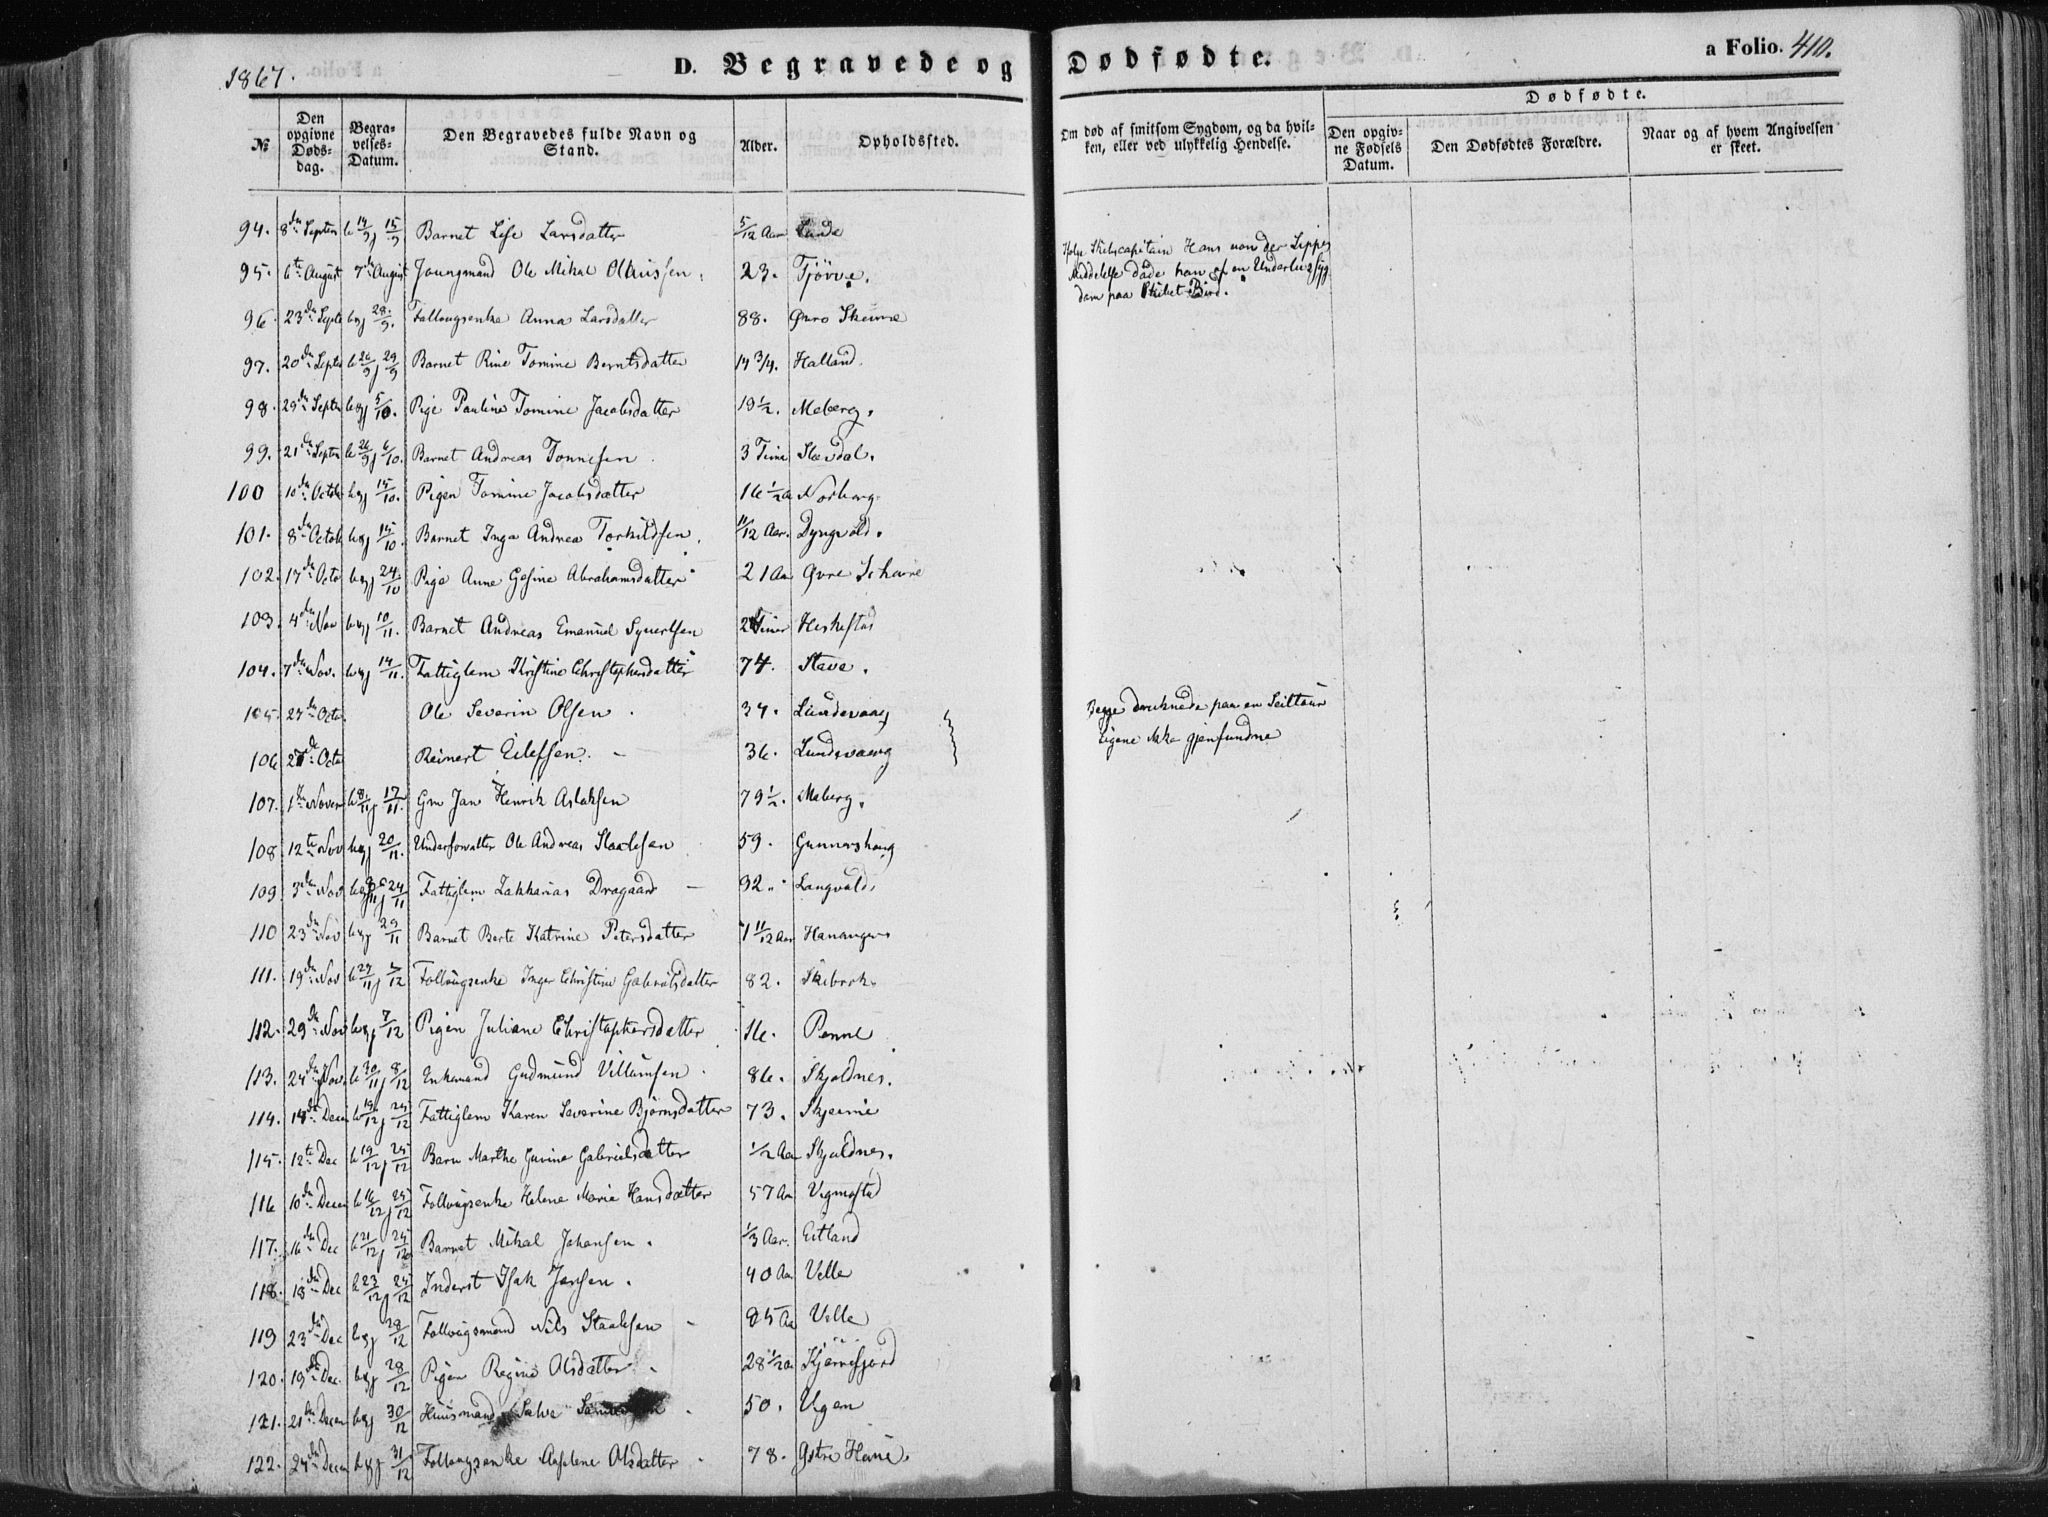 1867.
D. Begravede og Dødfødte.
a Folio. 410.
№
Den opgivne Døds-dag.
Begra-velses-Datum.
Den Begravedes fulde Navn og Stand.
Alder.
Opholdssted.
Om død af smitsom Sygdom, og da hvil-ken, eller ved ulykkelig Hendelse.
Dødfødte.
Den opgiv-ne Fødsels Datum.
Den Dødfødtes Forældre.
Naar og af hvem Angivelsen er skeet.
94. 8de Septem b 14/9 j 15/9 Barnet Lise Larsdatter 5/12 Aar Lunde
95. 6te August 7de August Joungmand Ole Mikal Olaussen. 23. Tjövve. Skibscapitain Hans von der Lippes
Middelelse døde han af en Underlivssyg
dom paa Skibet Bird.
96. 23de Septe b og j 28/9. Follougsenke Anna Larsdatter 88. Øvre Skeime
97. 20de Septe b 26/9 j 29/9 Barnet Rine Tomine Berntsdatter 14 3/4. Halland.
98. 29de Septem b og j 5/10. Pige Pauline Tomine Jacobsdatter 19 1/2. Meberg.
99. 21de Septem b 26/9 j 6/10. Barnet Andreas Tonnesen. 3 Time Slevdal.
100 10de Octob b og j 15/10. Pigen Tomine Jacobsdatter 16 1/2 A Norberg
101. 8de Octob b og j 15/10. Barnet Inga Andrea Torkildsen. 11/12 Aar. Dyngvold.
102. 17de Octo b og j 24/10 Pige Anne Gesine Abrahamsdatter 21 Aar Øvre
103. 4de Nov b og j 10/11. Barnet Andreas Emanuel Syvertsen 2 Timer Heskestad
104. 7de Nov. b og j 14/11. Fattiglem Kristine Christophersdatter 74. Stave.
105. 27de Octo. Ole Severin Olsen. 34. Lundevaag Begge druknede paa en Seiltour
106 27de Octo Reinert Eilefsen. 36. Lundevaag Ligene ikke gjenfundne
107. 1ste Novem b 8/11 j 17/11. Gm Jan Henrik Aslaksen 79 1/2. Meberg.
108 12te Nov b og j 20/11. Underforvalter Ole Andreas Staalesen 59. Gunnershoug
109. 3de Nov j 24/11 Fattiglem Zakkarias Dragaard 92. Langvold
110 23de Nov b og j 29/11 Barnet Berte Katrine Petersdatter 1 11/12 Aar Hananger
111. 19de Nov b 27/11 j /12 Follougsenke Inger Christine Gabrielsdatter 82. Skibrok
112. 29de Nov b og j 7/12 Pigen Juliane Christophersdatter 16. Penne
113. 24de Nov. b 30/11 j 8/12 Enkemand Gudmund Villumsen. 86. Skjoldnes.
114. 14de Decem b 19/12 j 25/12 Fattiglem Karen Severine Bjørnsdatter 73. Skjeime
115. 12te Dec b 19/12 j 25/12 Barn Marthe Gurine Gabrielsdatter 1/2 Aar Skjoldnes.
116 10de Decem b 16/12 j 25/12 Follougsenke Helene Marie Hansdatter 57 Aar Vigmostad
117. 16de Dec b 21/12 j 25/12 Barnet Mikal Johansen. 1/3 Aar. Eitland
118. 18de Dec b 23/12 j 25/12 Inderst Isak Jansen. 40 Aar Velle
119 23de Dec b og j 28/12 Follougsmand Nils Staalesen 85 Aar Velle
120. 19de Dec. b og j 28/12 Pigen Regine Olsdatter. 28 1/2 Aar Kjørrefjord
121. 21de Decem b og j 30/12 Huusmand Salve 50. Vigen
122. 24de Decem b og j 31/12 Follougsenke Olsdatter. 78. Østre Haue.